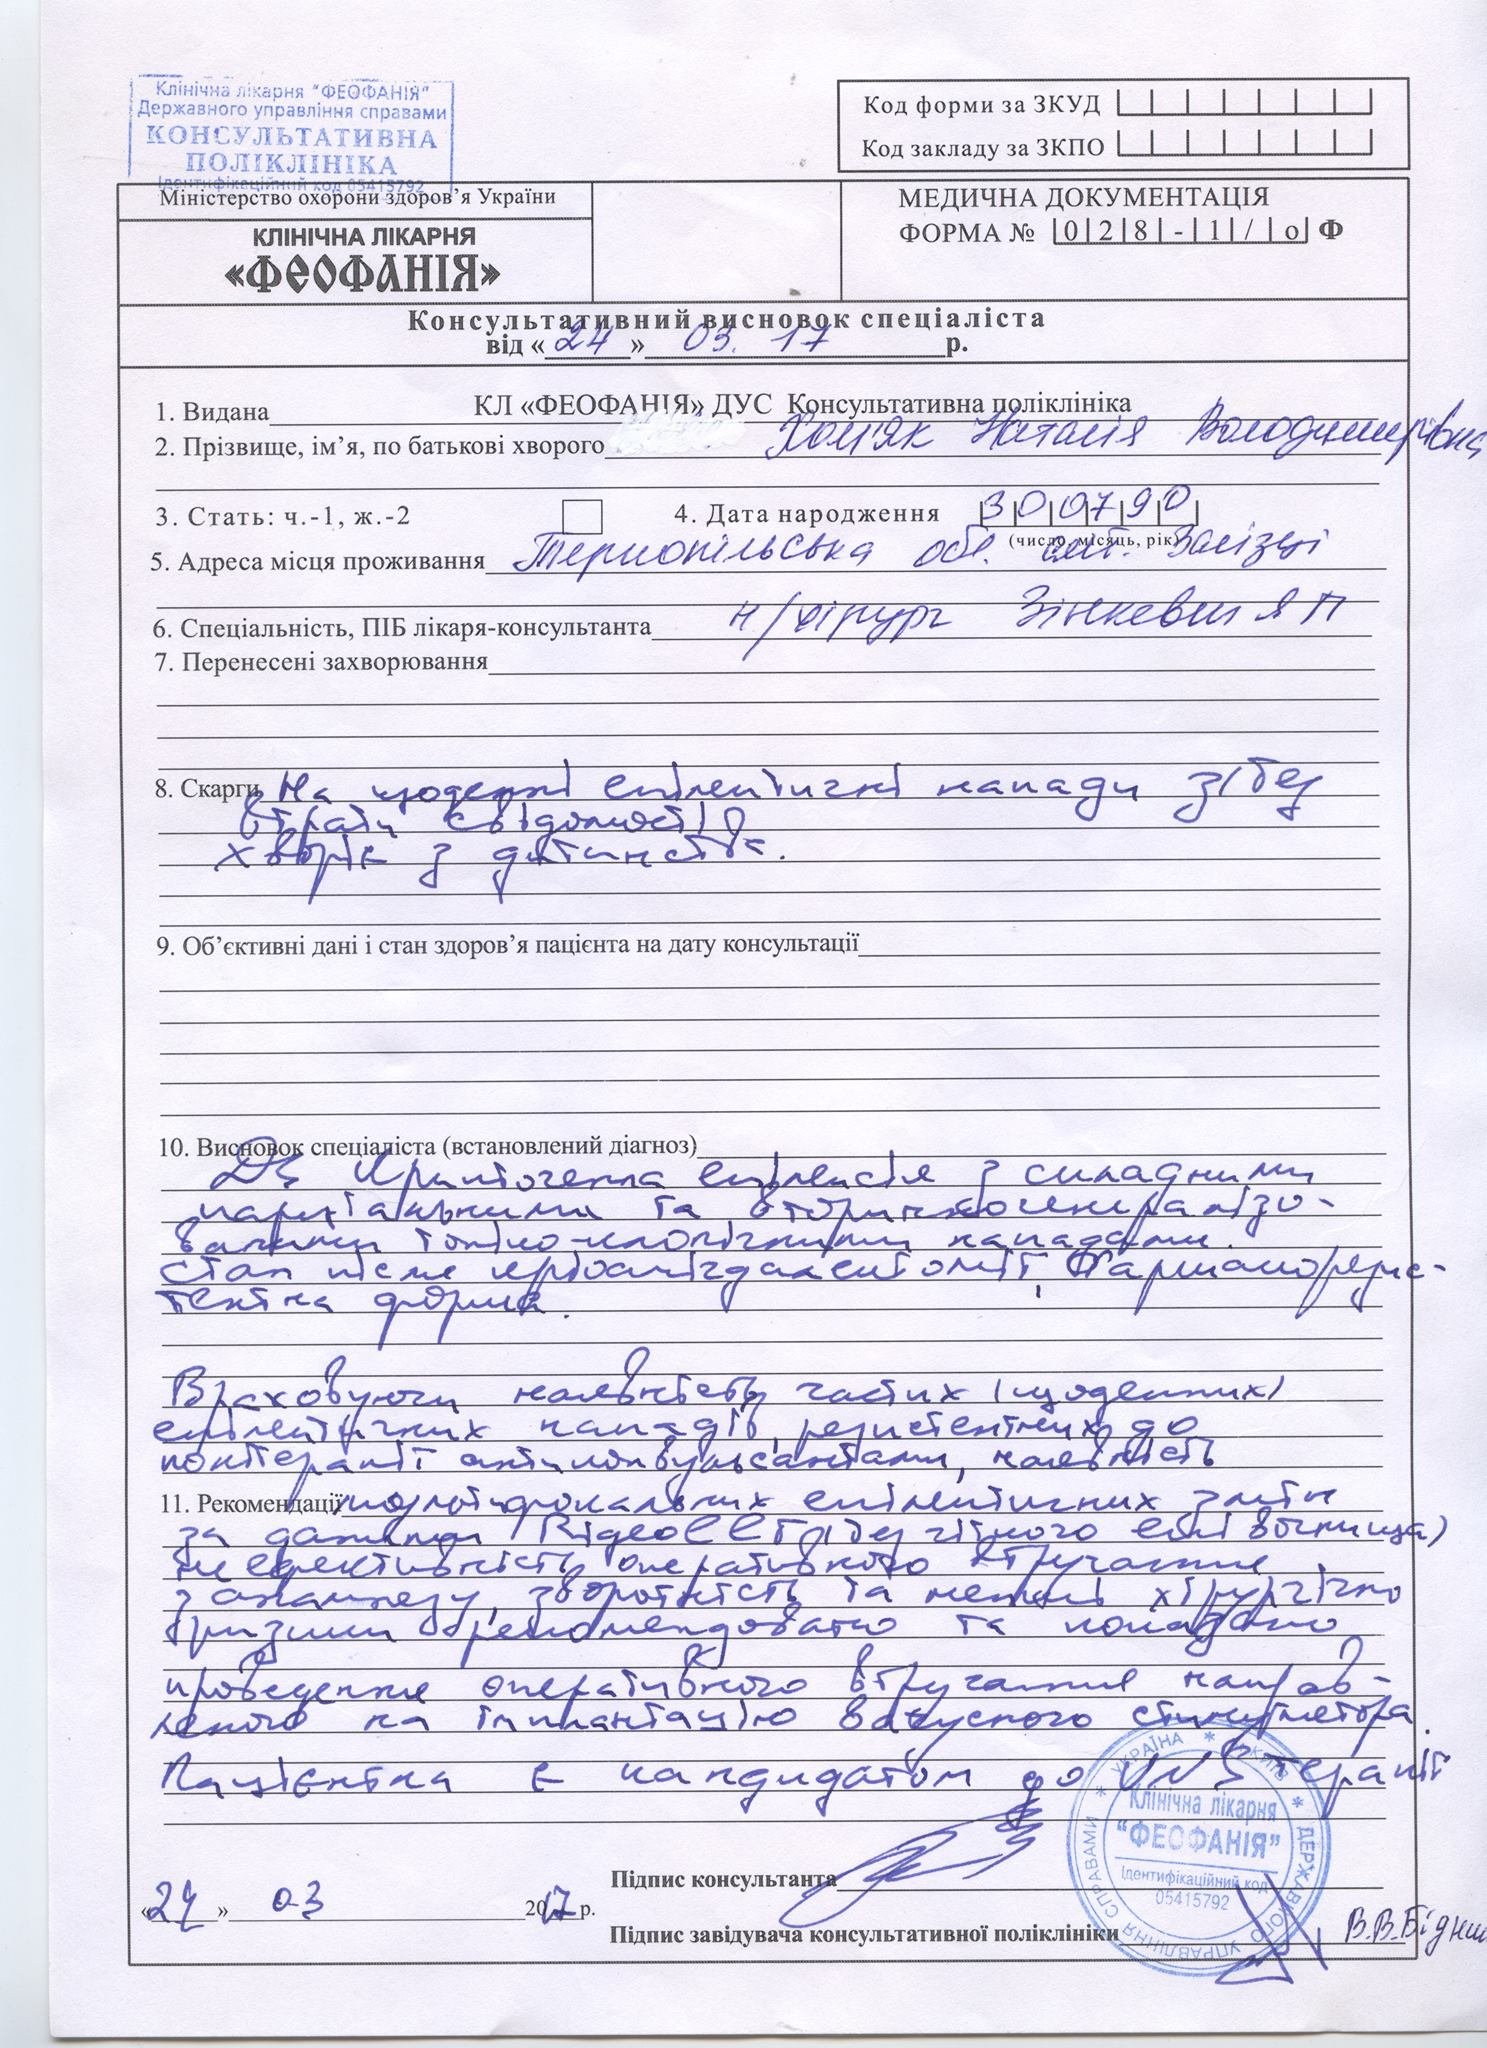 Клінічна лікарня "ФЕОФАНІЯ"
Державного управління справами
КОНСУЛЬТАТИВНА
ПОЛІКЛІНІКА
Ідентифікаційний код 05415792
Код форми за ЗКУД
Код закладу за ЗКПО
Міністерство охорони здоров’я України
КЛІНІЧНА ЛІКАРНЯ
«ФЕОФАНІЯ»
МЕДИЧНА ДОКУМЕНТАЦІЯ
ФОРМА № 028-1/о Ф
Консультативний висновок спеціаліста
від «24» 03. 17 р.
1. Видана КЛ «ФЕОФАНІЯ» ДУС Консультативна поліклініка
2. Прізвище, ім’я, по батькові хворого Хом'як Наталія Володимирівна
3. Стать: ч.-1, ж.-2
4. Дата народження 300790
(число, місяць, рік)
5. Адреса місця проживання Тернопільська обл. смт. Залізці
6. Спеціальність, ПІБ лікаря-консультанта н/хірург Зінкевич Я П
7. Перенесені захворювання
8. Скарги На щоденні епілептичні напади з/без
втрати свідомості
хворіє з дитинства.
9. Об’єктивні дані і стан здоров’я пацієнта на дату консультації
10. Висновок спеціаліста (встановлений діагноз)
Ds епілепсія з складними
парціальними та вторинногенералізо-
ваними тоніко-клонічними нападами.
Стан після Фармакорезис-
тентна форма.
Враховуючи наявність частих (щоденних)
епілептичних нападів, резистентних до
політерапії антиконвульсантами, наявність
11. Рекомендації мультифокальних епілептичних змін
за даними ВідеоЕЕГ (без чіткого епівогнища)
неефективність оперативного втручання
з анамнезу, зворотність та низькі
рекомендовано та показано
проведення оперативного втручання направ-
леного на імплантацію вагусного стимулятора.
Пацієнтка є кандидатом до VNS терапії
Підпис консультанта
«24» 03 2017 р.
Підпис завідувача консультативної поліклініки
УКРАЇНА * м. КИЇВ * ДЕРЖАВНОГО УПРАВЛІННЯ СПРАВАМИ *
Клінічна лікарня
"ФЕОФАНІЯ"
Ідентифікаційний код
05415792